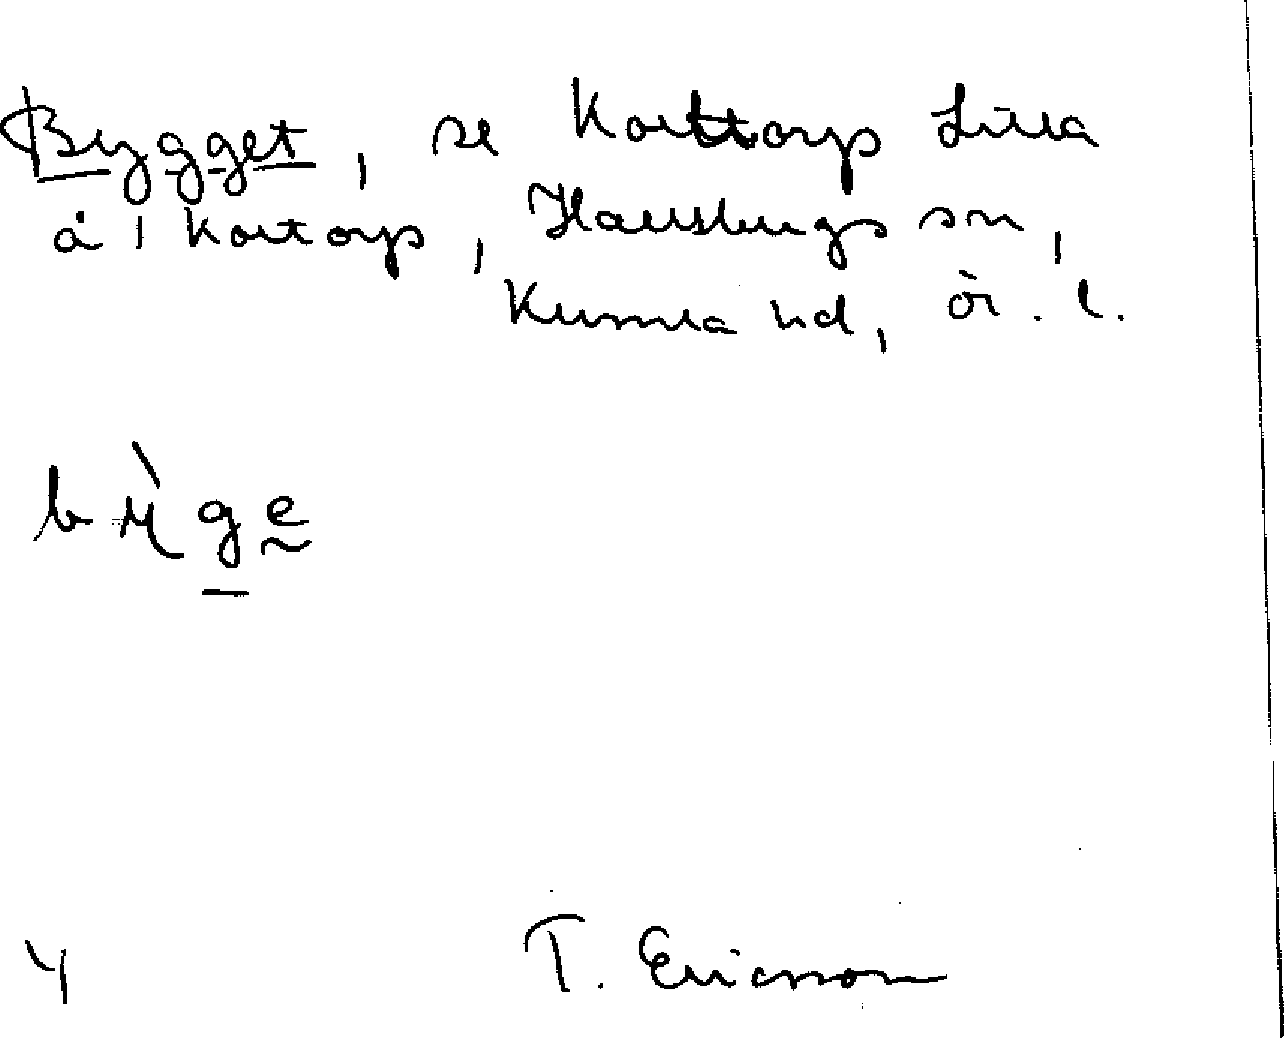 Bygget, se Korttorp Lilla
å 1 Kortorp, Hallsbergs sn,
Kumla hd, Ör. l.
bỳge
4
T. Ericsson